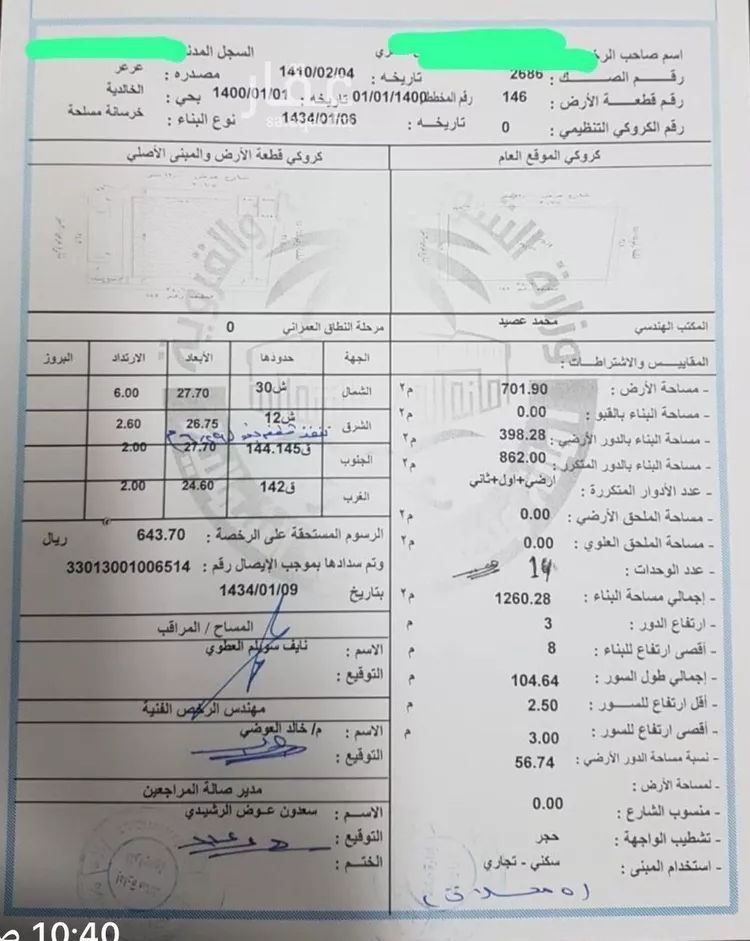 اسم صاحب الرخـ
السجل المدنـ
رقـم الصـك : 2686
تاريخه : 1410/02/04
مصدره : عرعر
رقـم قطعـة الأرض : 146
رقم المخطط 01/01/1400
تاريخه : 1400/01/01
بحي : الخالدية
رقم الكروكي التنظيمي : 0
تاريخـه : 1434/01/06
نوع البناء : خرسانة مسلحة
عقار
كروكي الموقع العام
كروكي قطعة الأرض والمبنى الأصلي
المكتب الهندسي محمد عصيد
مرحلة النطاق العمراني 0
المقاييـس والاشتراطـات :
- مساحة الأرض : 701.90 م٢
- مساحة البناء بالقبو : 0.00 م٢
- مساحة البناء بالدور الأرضي : 398.28 م٢
- مساحة البناء بالدور المتكرر : 862.00 م٢
- عدد الأدوار المتكررة : ارضي+اول+ثاني
- مساحة الملحق الأرضي : 0.00 م٢
- مساحة الملحق العلوي : 0.00 م٢
- عدد الوحدات : 14
- إجمالي مساحة البناء : 1260.28 م٢
- ارتفاع الدور : 3 م
- أقصى ارتفاع للبناء : 8 م
- إجمالي طول السور : 104.64 م
- أقل ارتفاع للسـور : 2.50 م
- أقصى ارتفاع للسور : 3.00 م
- نسبة مساحة الدور الأرضي : 56.74
لمساحة الأرض :
- منسوب الشارع : 0.00
- تشطيب الواجهة : حجر
- استخدام المبنى : سكني - تجاري
الجهة حدودها الأبعاد الارتداد البروز
الشمال ش30 27.70 6.00
الشرق ش12 26.75 2.60
الجنوب ق144.145 27.70 2.00
الغرب ق142 24.60 2.00
الرسوم المستحقة على الرخصة : 643.70 ريال
وتم سدادها بموجب الإيصال رقم : 33013001006514
بتاريخ 1434/01/09
المساح / المراقب
الاسم : نايف سويلم العطوي
التوقيع :
مهندس الرخص الفنية
الاسم : م/ خالد العوضي
التوقيع :
مدير صالة المراجعين
الاسـم : سعدون عـوض الرشيدي
التوقيع :
الختـم :
10:40